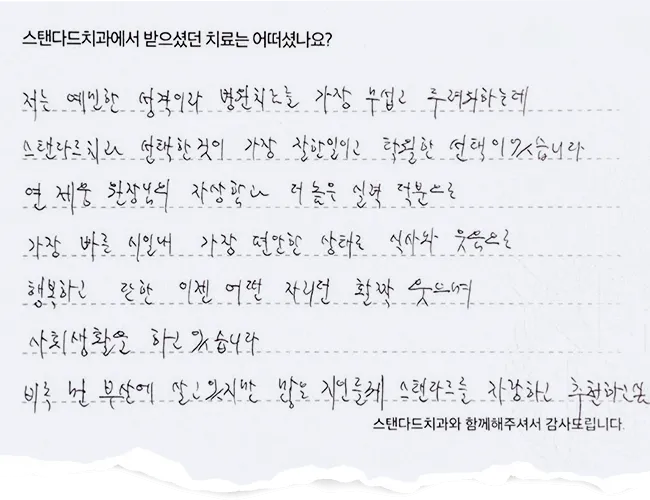 스탠다드치과에서 받으셨던 치료는 어떠셨나요?
저는 예민한 성격이라 병원치료를 가장 무섭고 두려워하는데
스탠다르치과 선택한것이 가장 잘한일이고 탁월한 선택이었습니다
연제웅 원장님의 자상함과 더 높은 실력 덕분으로
가장 빠른 시일내 가장 편안한 상태로 식사와 웃음으로
행복하고 란한 이젠 어떤 자리던 활짝 웃으며
사회생활을 하고 있습니다
비록 먼 부산에 살고있지만 많은 지인들께 스탠다르를 자랑하고 추천하고싶
스탠다드치과와 함께해주셔서 감사드립니다.